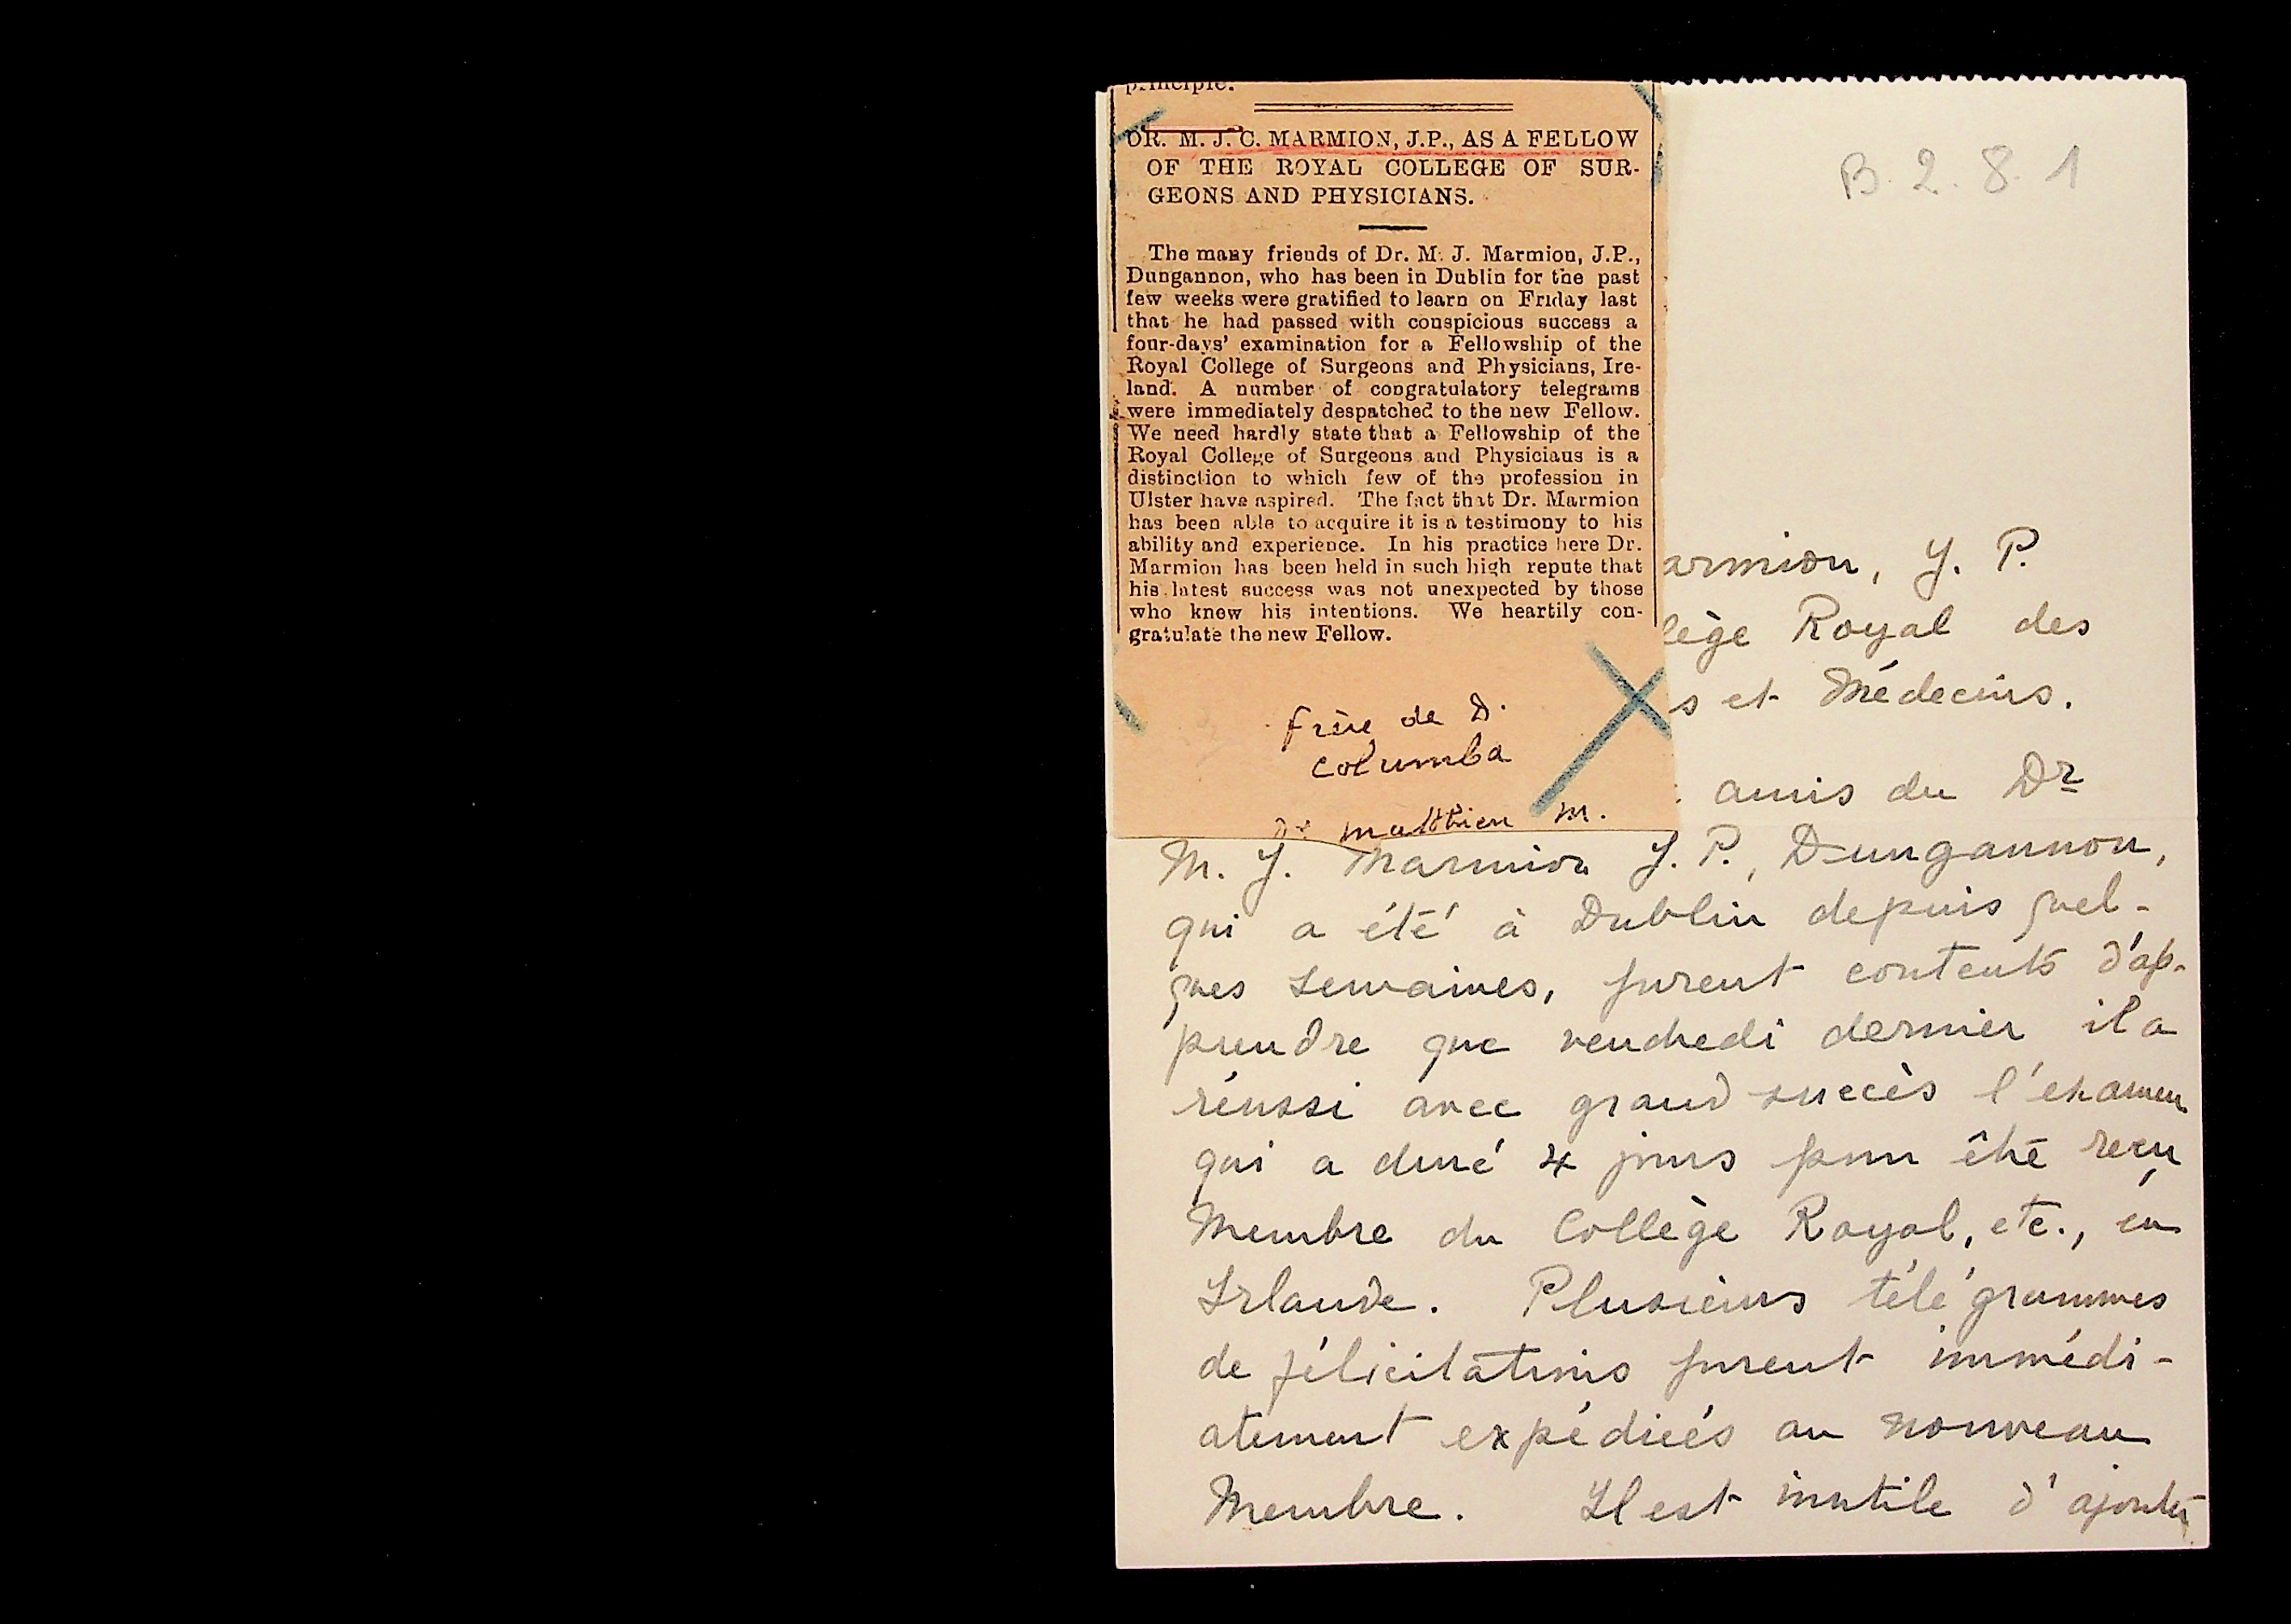 principle.
DR. M. J. C. MARMION, J.P., AS A FELLOW
OF THE ROYAL COLLEGE OF SUR-
GEONS AND PHYSICIANS.
The many friends of Dr. M. J. Marmion, J.P.,
Dungannon, who has been in Dublin for the past
few weeks were gratified to learn on Friday last
that he had passed with conspicious success a
four-days' examination for a Fellowship of the
Royal College of Surgeons and Physicians, Ire-
land. A number of congratulatory telegrams
were immediately despatched to the new Fellow.
We need hardly state that a Fellowship of the
Royal College of Surgeons and Physicians is a
distinction to which few of the profession in
Ulster have aspired. The fact that Dr. Marmion
has been able to acquire it is a testimony to his
ability and experience. In his practice here Dr.
Marmion has been held in such high repute that
his latest success was not unexpected by those
who knew his intentions. We heartily con-
gratulate the new Fellow.
frère de D.
Columba
Dr Matthieu M.
B. 2. 8. 1
armion, J. P.
lège Royal des
s et Médecins.
amis du Dr
M. J. Marmion J. P., Dungannon,
qui a été à Dublin depuis quel-
ques semaines, furent contents d'ap-
prendre que vendredi dernier il a
réussi avec grand succès l'examen
qui a duré 4 jours pour être reçu
Membre du Collège Royal, etc., en
Irlande. Plusieurs télégrammes
de félicitations furent immédi-
atement expédiés au nouveau
Membre. Il est inutile d'ajouter